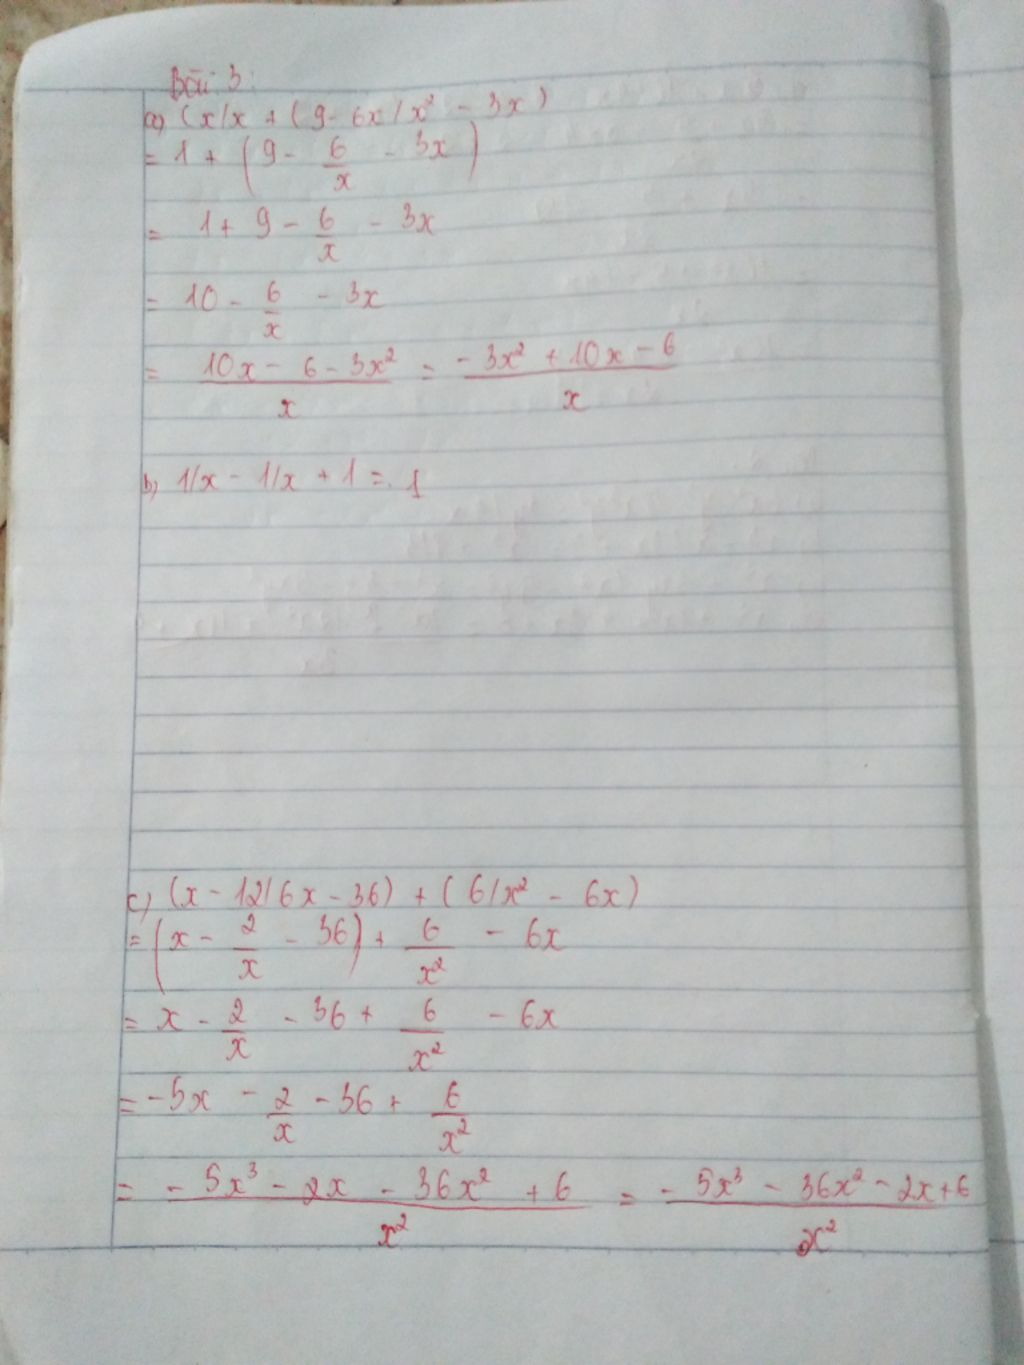 Bài 3:
a) (x/x + (9 - 6x/x² - 3x)
= 1 + (9 - 6/x - 3x)
= 1 + 9 - 6/x - 3x
= 10 - 6/x - 3x
= (10x - 6 - 3x²)/x = (-3x² + 10x - 6)/x
b) 1/x - 1/x + 1 = 1
c) (x - 12/6x - 36) + (6/x² - 6x)
= (x - 2/x - 36) + 6/x² - 6x
= x - 2/x - 36 + 6/x² - 6x
= -5x - 2/x - 36 + 6/x²
= (-5x³ - 2x - 36x² + 6)/x² = (-5x³ - 36x² - 2x + 6)/x²